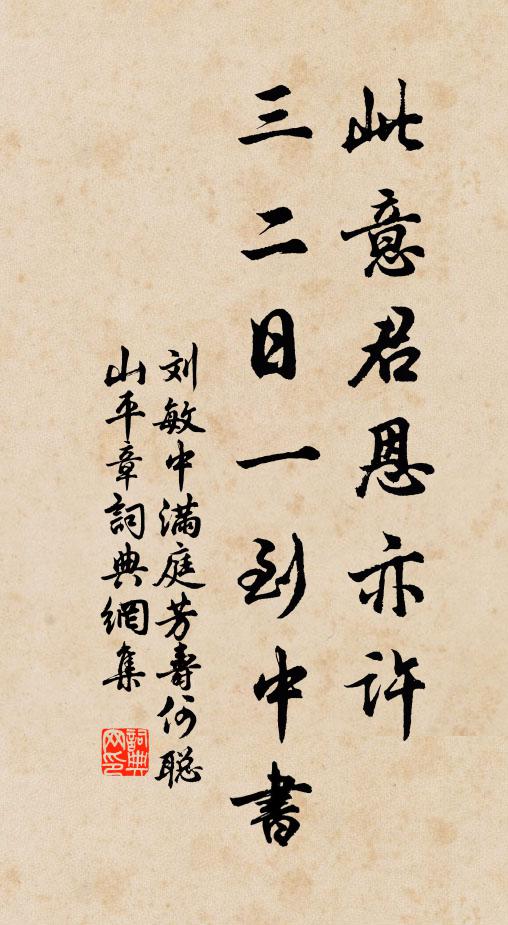 此意君恩亦许
三二日一到中書
刘敏中满庭芳寿何聪
山平章詞典網集
詞典网印